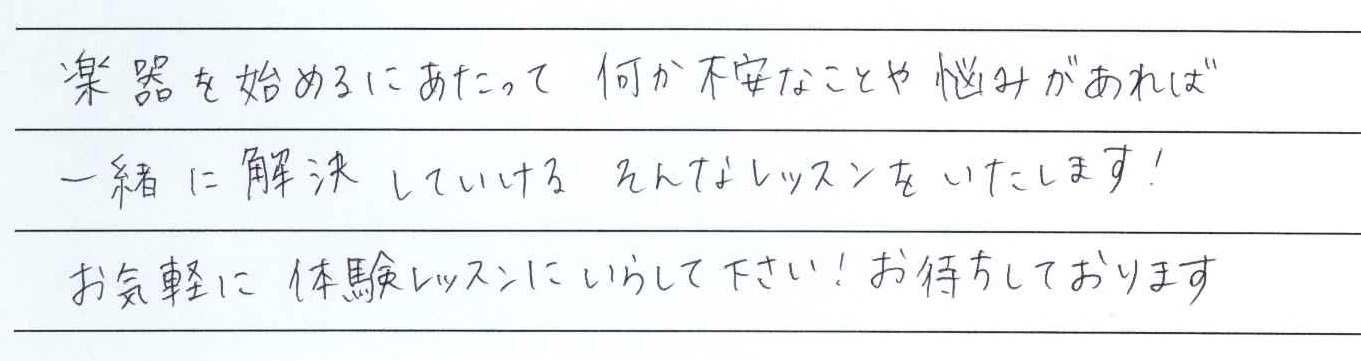 楽器を始めるにあたって 何か不安なことや悩みがあれば
一緒に解決していける そんなレッスンをいたします!
お気軽に体験レッスンにいらして下さい!お待ちしております